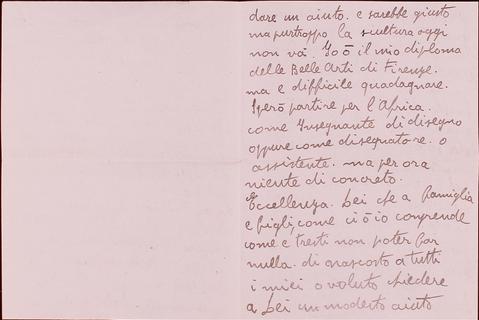 dare un aiuto. e sarebbe giusto
ma purtroppo la scultura oggi
non và. Io ō il mio diploma
delle Belle Arti di Firenze.
ma e difficile quadagnare.
Sperō partire per l'Africa.
come Insegnante di disegno
oppure come disegnatore. o
assistente. ma per ora
niente di concreto.
Eccellenza. Lei che a famiglia
e figli, come ci ō io comprende
come e tristi non poter far
nulla. di nascosto a tutti
i miei o voluto chiedere
a Lei un modesto aiuto